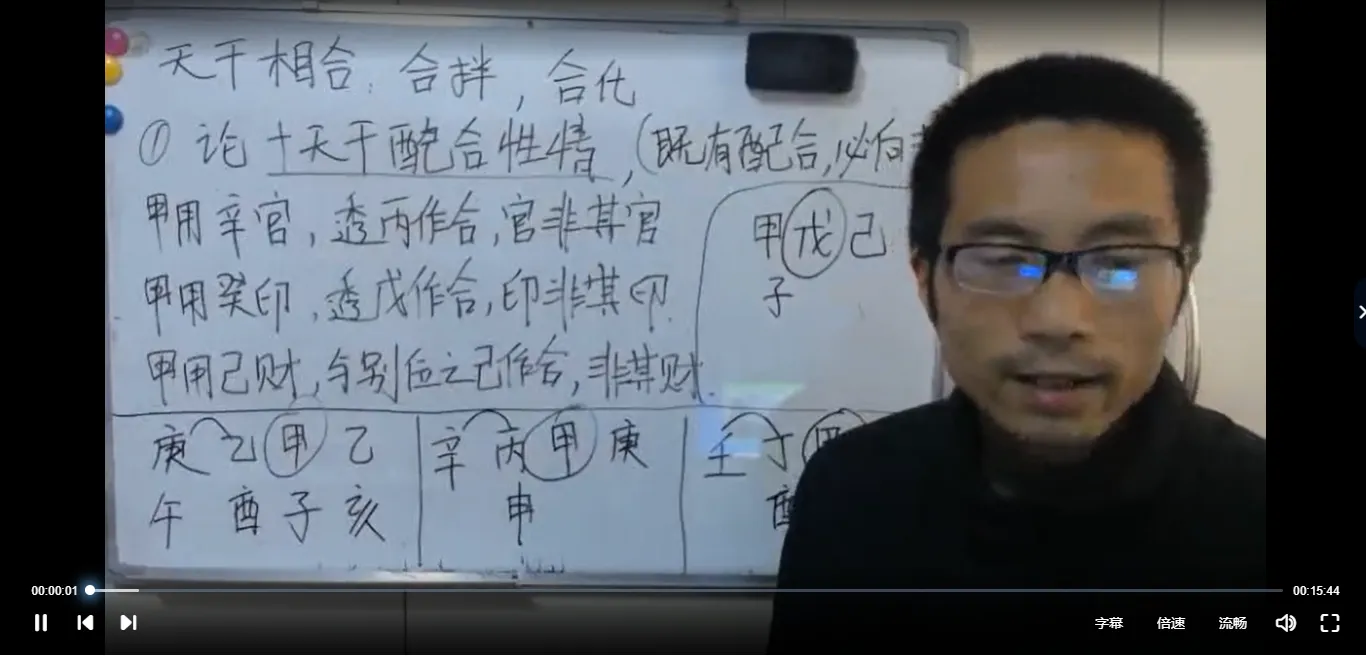 天干相合：合拌，合化
① 论十天干配合性情，(既有配合，必有
甲用辛官，透丙作合，官非其官
甲用癸印，透戊作合，印非其印.
甲用己财，与别位之己作合，非其财.
甲戊己
子
庚乙甲乙
午酉子亥
辛丙甲庚
申
壬丁
酉
00:00:01
00:15:44
字幕 倍速 流畅